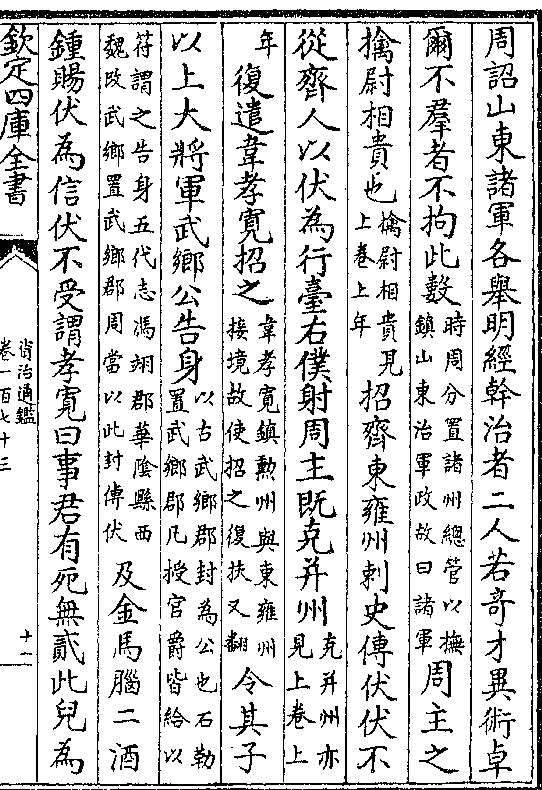 周詔山東諸軍各舉明經幹治者二人若奇才異術卓
爾不羣者不拘此數
時周分置諸州總管以撫
鎮山東治軍政故曰諸軍
周主之
擒尉相貴也
擒尉相貴見
上卷上年
招齊東雍州刺史傅伏伏不
從齊人以伏為行臺右僕射周主既克并州
克并州亦
見上卷上
年
復遣韋孝寛招之
韋孝寛鎮勲州與東雍州
接境故使招之復扶又翻
令其子
以上大將軍武鄉公告身
以古武鄉郡封為公也石勒
置武鄉郡凡授官爵皆給以
符謂之告身五代志馮翊郡華陰縣西
魏改武鄉置武鄉郡周當以此封傅伏
及金馬腦二酒
鍾賜伏為信伏不受謂孝寛曰事君有死無貳此兒為
欽定四庫全書
資治通鑑
卷一百七十三
十一